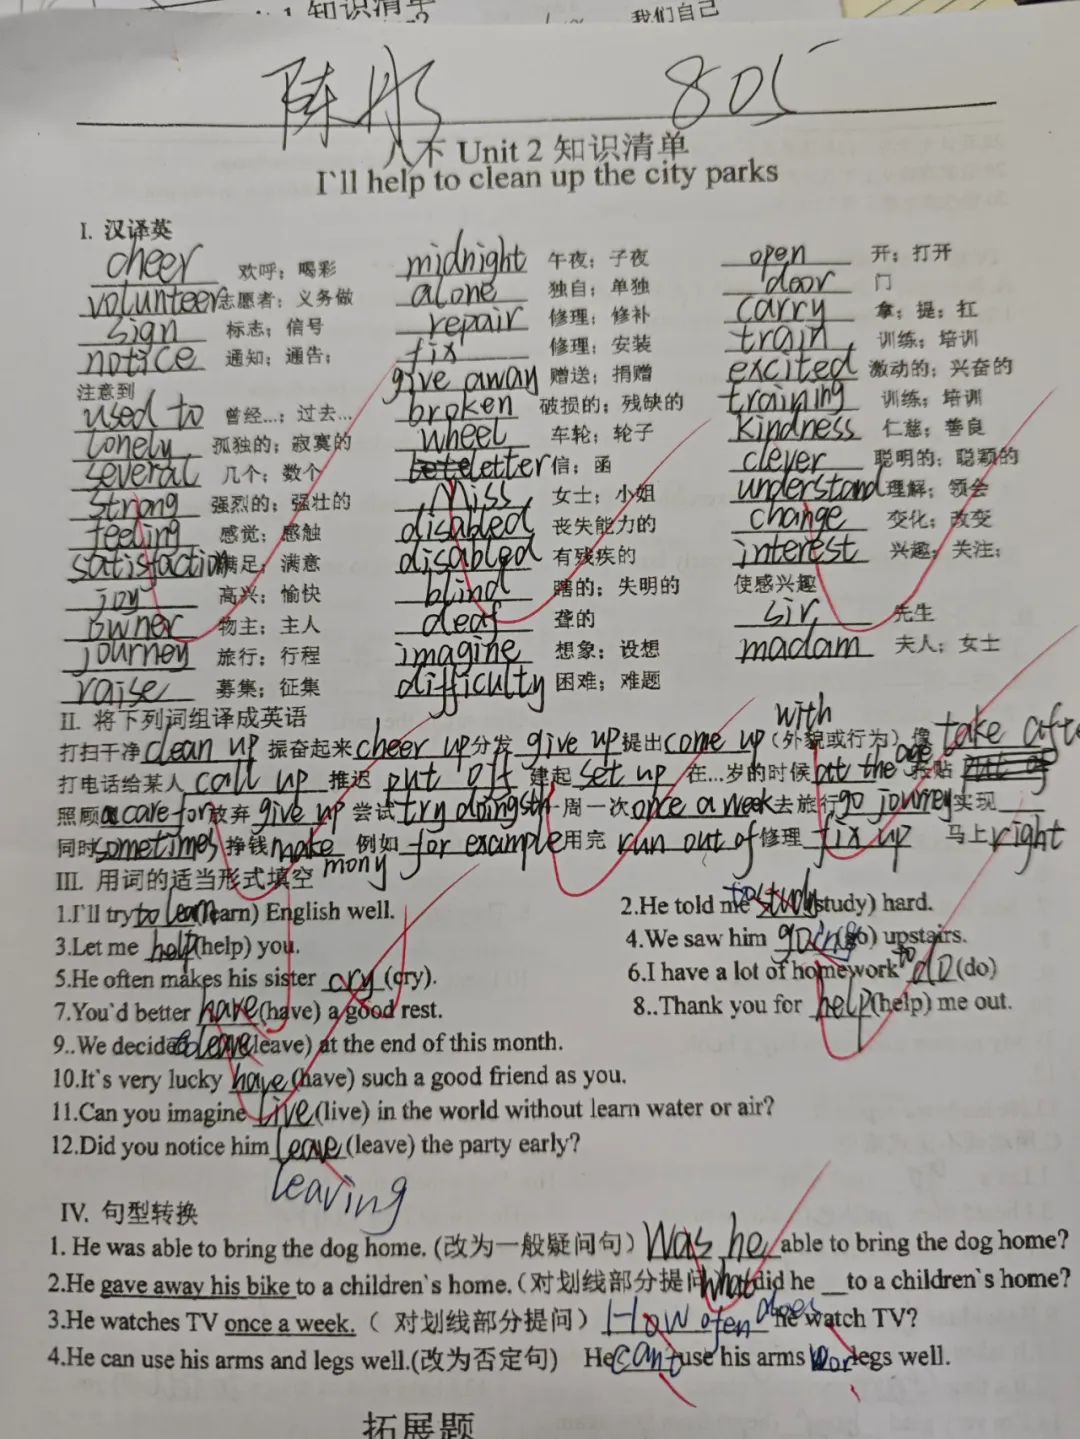 1 知识清单
我们自己
陈彤 805
八下 Unit 2 知识清单
I`ll help to clean up the city parks
I. 汉译英
cheer 欢呼；喝彩 midnight 午夜；子夜 open 开；打开
volunteer 志愿者；义务做 alone 独自；单独 door 门
sign 标志；信号 repair 修理；修补 carry 拿；提；扛
notice 通知；通告； fix 修理；安装 train 训练；培训
注意到 give away 赠送；捐赠 excited 激动的；兴奋的
used to 曾经...；过去... broken 破损的；残缺的 training 训练；培训
lonely 孤独的；寂寞的 wheel 车轮；轮子 kindness 仁慈；善良
several 几个；数个 letter 信；函 clever 聪明的；聪颖的
strong 强烈的；强壮的 Miss 女士；小姐 understand 理解；领会
feeling 感觉；感触 disabled 丧失能力的 change 变化；改变
satisfaction 满足；满意 disabled 有残疾的 interest 兴趣；关注；
joy 高兴；愉快 blind 瞎的；失明的 使感兴趣
owner 物主；主人 deaf 聋的 sir 先生
journey 旅行；行程 imagine 想象；设想 madam 夫人；女士
raise 募集；征集 difficulty 困难；难题
II. 将下列词组译成英语
打扫干净 clean up 振奋起来 cheer up 分发 give up 提出 come up with （外貌或行为）像 take after
打电话给某人 call up 推迟 put off 建起 set up 在...岁的时候 at the age 张贴
照顾 care for 放弃 give up 尝试 try doing sth 一周一次 once a week 去旅行 go journey 实现
同时 sometimes 挣钱 make mony 例如 for example 用完 run out of 修理 fix up 马上 right
III. 用词的适当形式填空
1.I`ll try to learn (learn) English well. 2.He told me to study (study) hard.
3.Let me help (help) you. 4.We saw him going (go) upstairs.
5.He often makes his sister cry (cry). 6.I have a lot of homework to do (do)
7.You`d better have (have) a good rest. 8..Thank you for help (help) me out.
9..We decided to leave (leave) at the end of this month.
10.It`s very lucky have (have) such a good friend as you.
11.Can you imagine live (live) in the world without learn water or air?
12.Did you notice him leave (leave) the party early?
leaving
IV. 句型转换
1. He was able to bring the dog home. (改为一般疑问句） Was he able to bring the dog home?
2.He gave away his bike to a children`s home.（对划线部分提问） What did he __to a children`s home?
3.He watches TV once a week.（ 对划线部分提问） How ofen does he watch TV?
4.He can use his arms and legs well.(改为否定句) He cant use his arms or legs well.
拓展题